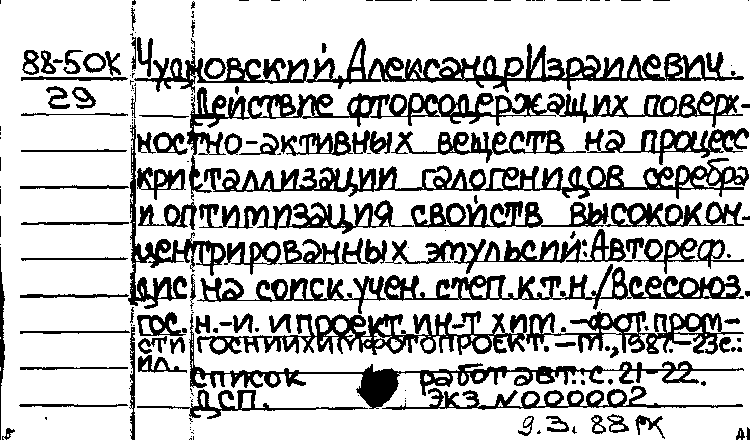 88-50К Чудновский, Александр Израилевич.
29 Действие фторсодержащих поверх-
ностно-активных веществ на процесс
кристаллизации галогенидов серебра
и оптимизация свойств высококон-
центрированных эмульсий: Автореф.
дис на соиск. учен. степ. к.т.н./Всесоюз.
гос. н.-и. и проект. ин-т хим.-фот. пром-
сти ГОСНИИХИМФОТОПРОЕКТ. - М., 1987. - 23с.:
ил.
Список работ авт.: с. 21-22.
ДСП. Экз. N 000002.
9.3.88 РК